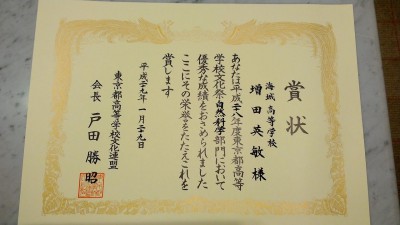 賞状
海城高等学校
増田英敏様
あなたは平成二十八年度東京都高等
学校文化祭自然科学部門において
優秀な成績をおさめられました
ここにその栄誉をたたえこれを
賞します
平成二十九年一月二十九日
東京都高等学校文化連盟
会長 戸田勝昭